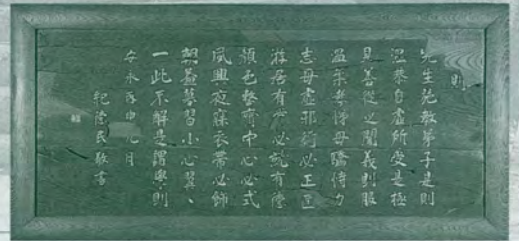 則
先生施教弟子是則
温恭自虚所受是極
見善從之聞義則服
温柔孝悌毋驕恃力
志毋虚邪行必正直
游居有常必就有徳
顔色整齊中心必式
夙興夜寐衣帯必飾
朝益暮習小心翼、
一此不解是謂學則
安永丙申九月
紀徳民敬書